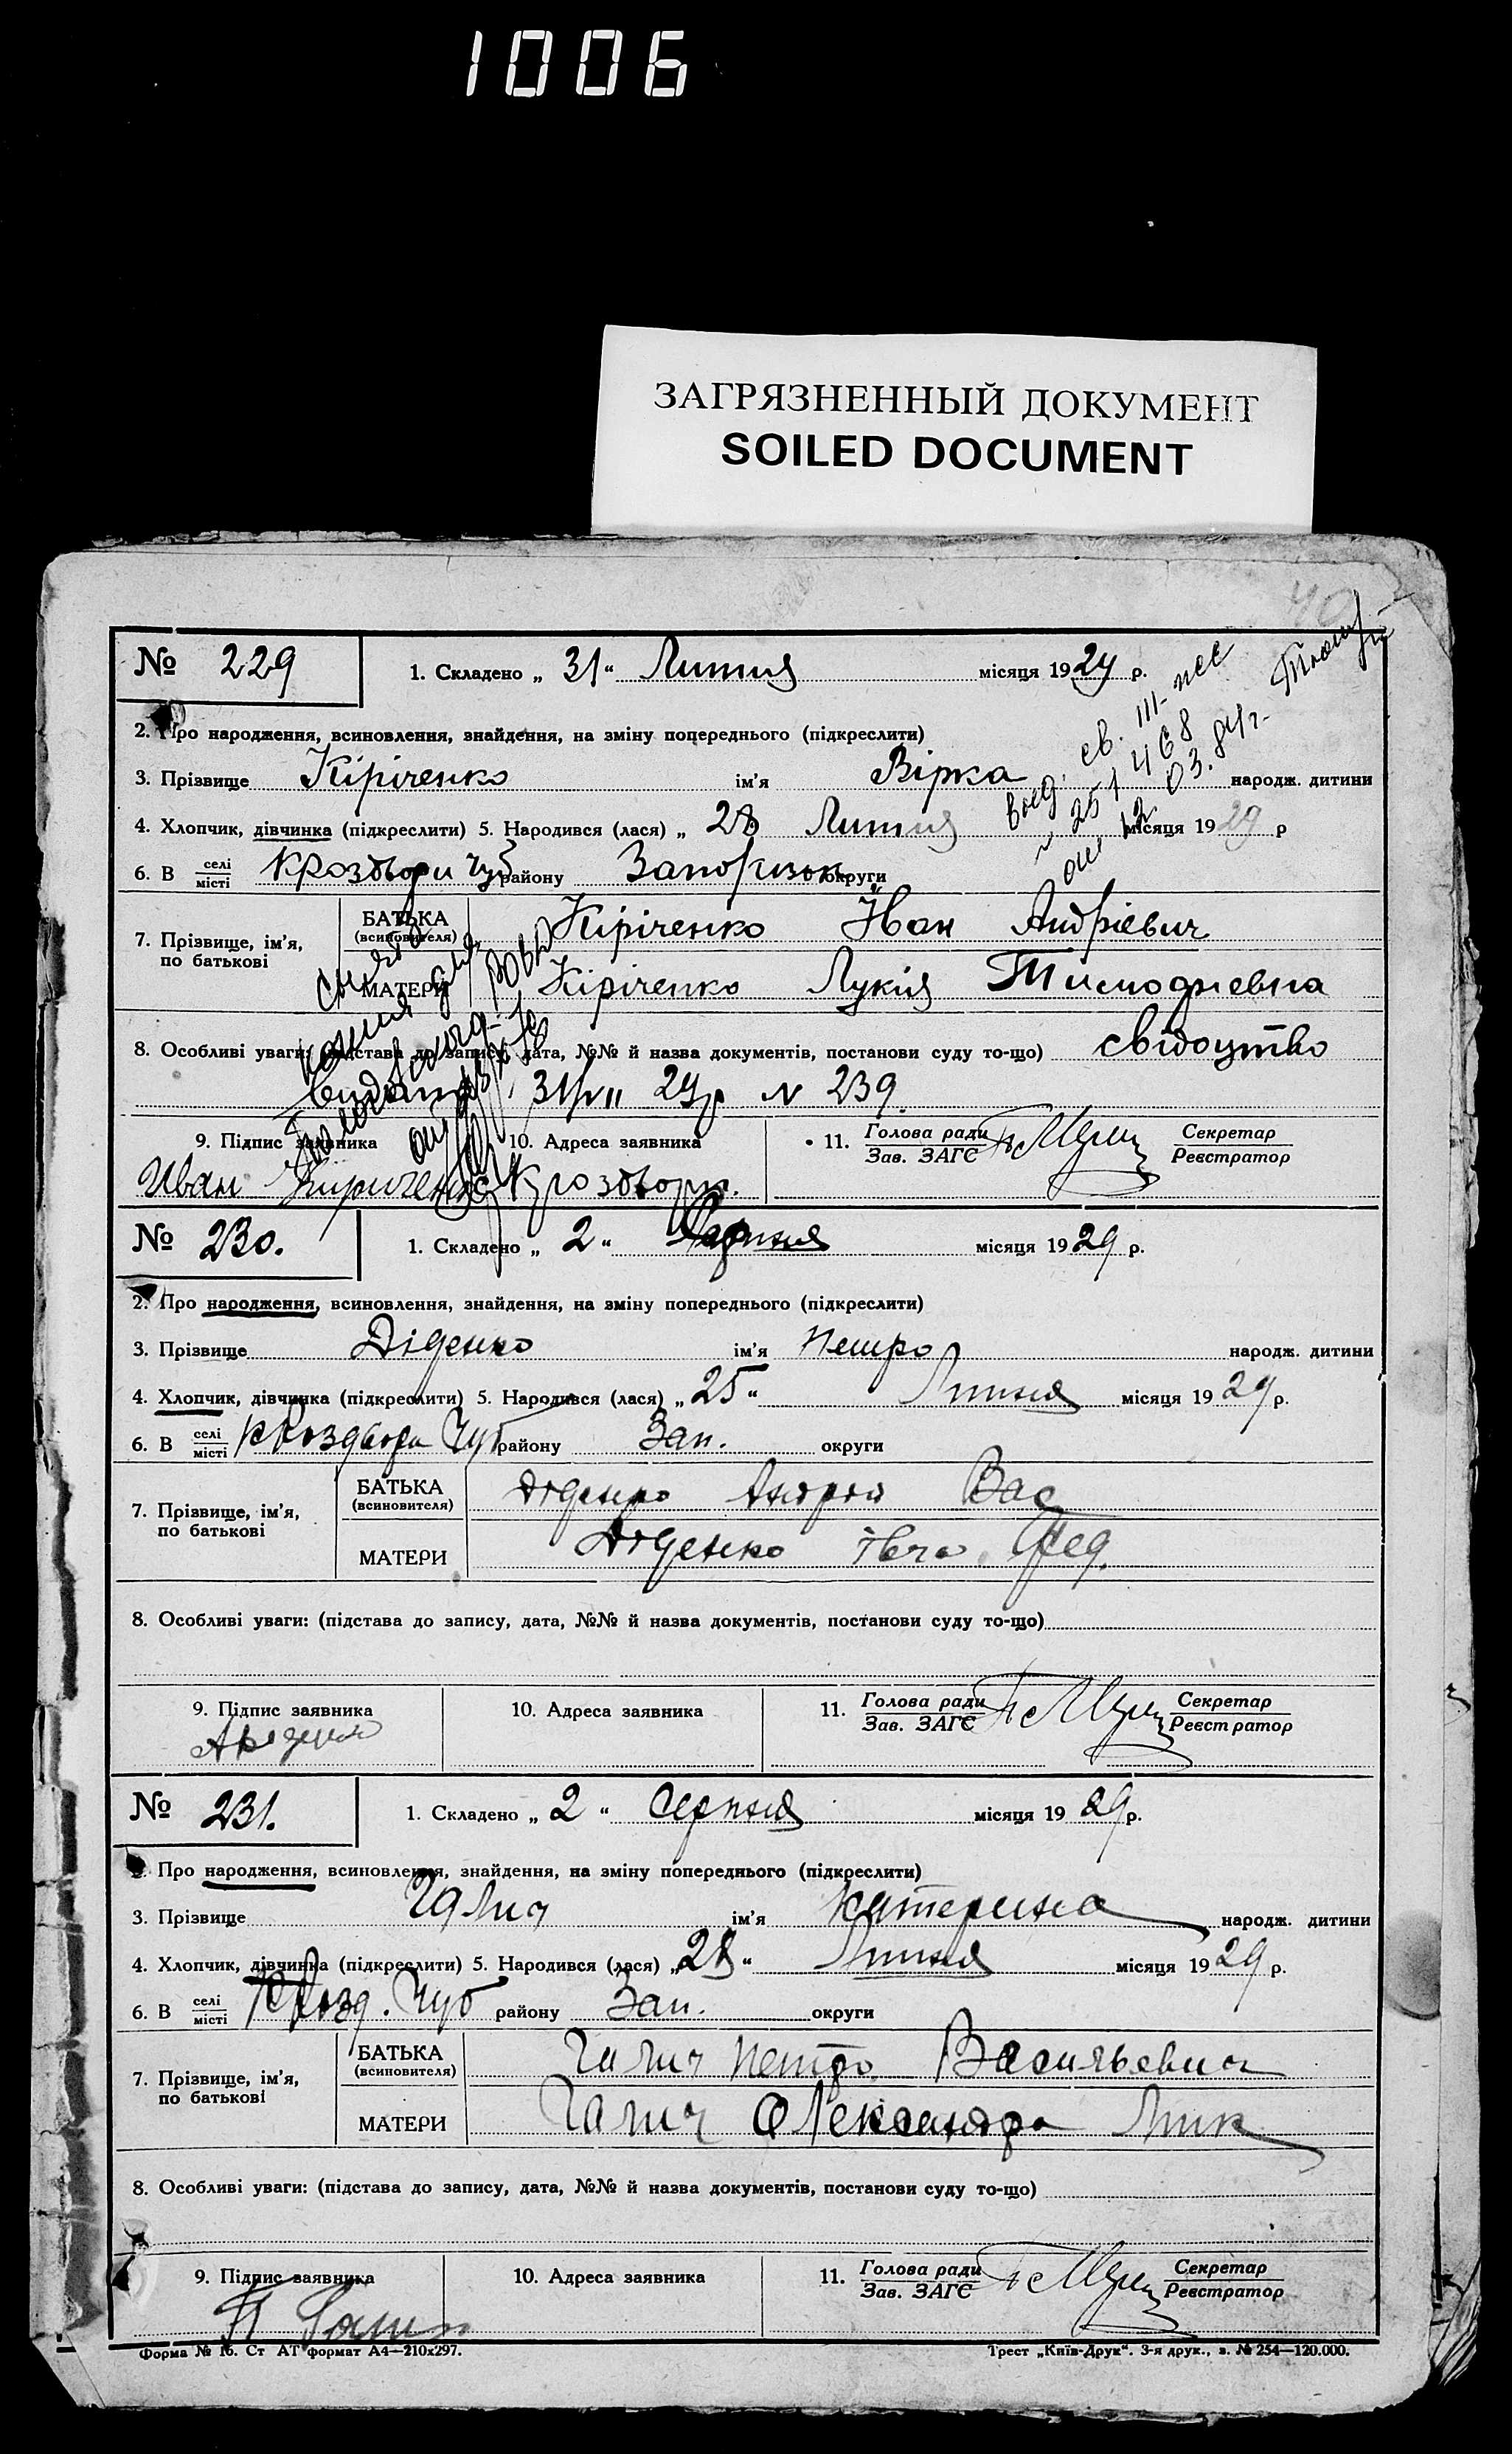 1006
ЗАГРЯЗНЕННЫЙ ДОКУМЕНТ
SOILED DOCUMENT
40
№ 229 1. Складено „ 31 “ Липня місяця 1929 р.
2. Про народження, всиновлення, знайдення, на зміну попереднього (підкреслити)
3. Прізвище Кіріченко ім'я Вірка народж. дитини
4. Хлопчик, дівчинка (підкреслити) 5. Народився (лася) „ 28 Липня місяця 1929 р
6. В селі місті Крозтвори Чуб району Запоризьк округи
7. Прізвище, ім'я, по батькові БАТЬКА (всиновителя) Кіріченко Іван Андрієвич
МАТЕРИ Кіріченко Лукія
8. Особливі уваги: (підстава до запису, дата, №№ й назва документів, постанови суду то-що) свідоцтво
31/VII 29р N 239
9. Підпис заявника 10. Адреса заявника 11. Голова ради Зав. ЗАГС Секретар Реєстратор
Иван Кириченко
№ 230. 1. Складено „ 2 “ Серпня місяця 1929 р.
2. Про народження, всиновлення, знайдення, на зміну попереднього (підкреслити)
3. Прізвище Діденко ім'я Петро народж. дитини
4. Хлопчик, дівчинка (підкреслити) 5. Народився (лася) „ 25 “ Липня місяця 1929 р.
6. В селі місті Чуб району Зап. округи
7. Прізвище, ім'я, по батькові БАТЬКА (всиновителя) Діденко Андрій Вас
МАТЕРИ Діденко Івга Фед.
8. Особливі уваги: (підстава до запису, дата, №№ й назва документів, постанови суду то-що)
9. Підпис заявника 10. Адреса заявника 11. Голова ради Зав. ЗАГС Секретар Реєстратор
№ 231. 1. Складено „ 2 “ Серпня місяця 1929 р.
2. Про народження, всиновлення, знайдення, на зміну попереднього (підкреслити)
3. Прізвище Галич ім'я Катерина народж. дитини
4. Хлопчик, дівчинка (підкреслити) 5. Народився (лася) „ 28 “ Липня місяця 1929 р.
6. В селі місті Чуб району Зап. округи
7. Прізвище, ім'я, по батькові БАТЬКА (всиновителя) Галич Петро Васильевич
МАТЕРИ Галич Олександра Мик
8. Особливі уваги: (підстава до запису, дата, №№ й назва документів, постанови суду то-що)
9. Підпис заявника 10. Адреса заявника 11. Голова ради Зав. ЗАГС Секретар Реєстратор
Форма № 16. Ст АТ формат А4—210х297. Трест „Київ-Друк“. 3-я друк., з. № 254—120.000.